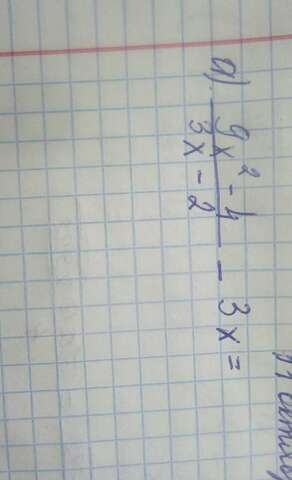 а) 9x² - 4
3x - 2 - 3x =